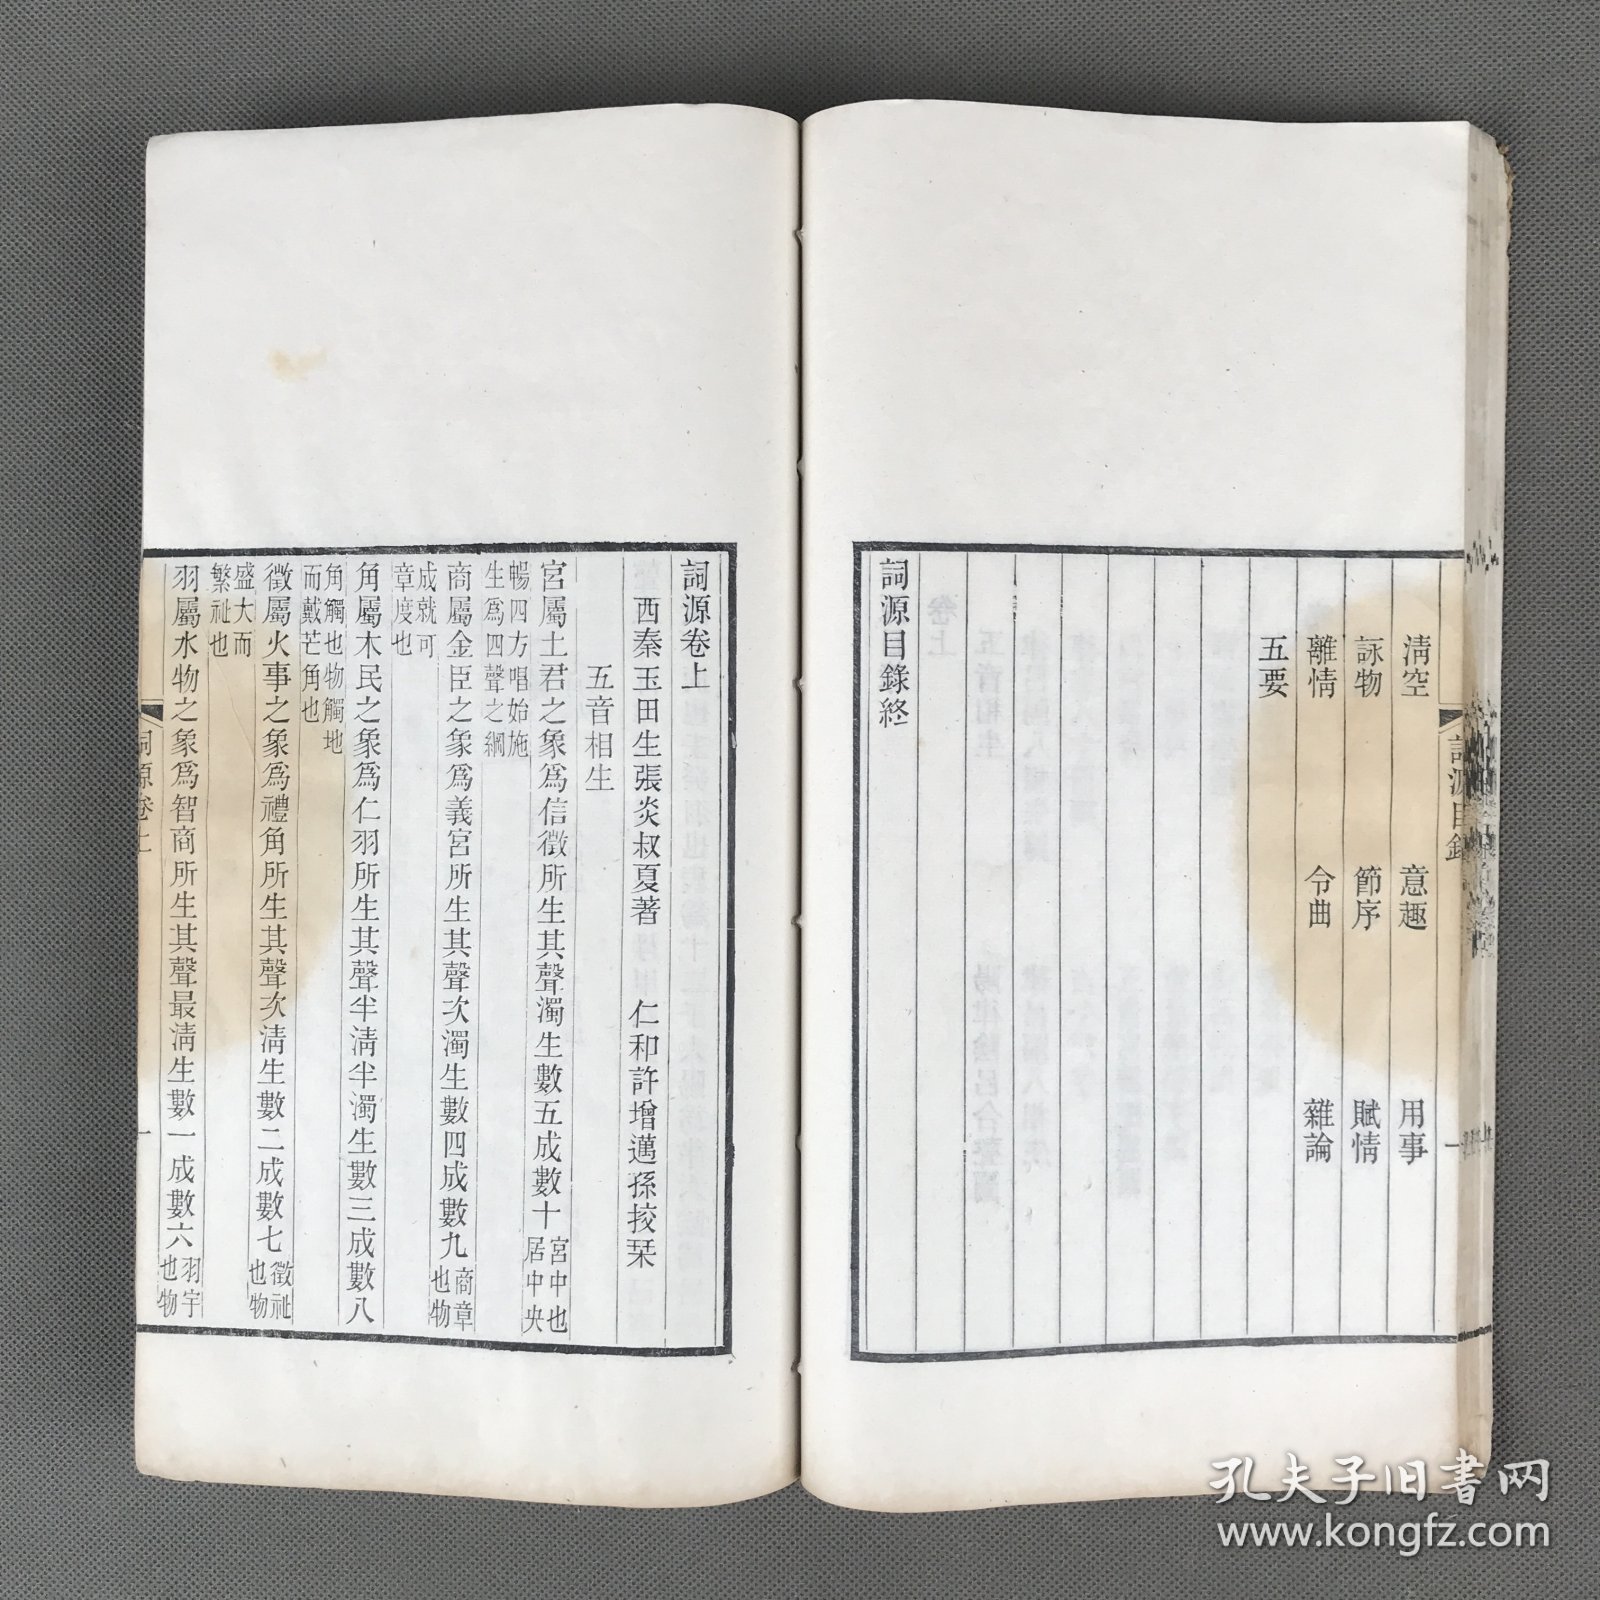 清空 意趣 用事
詠物 節序 賦情
離情 令曲 雜論
五要
詞源目錄終
詞源目錄
一
詞源卷上
西秦玉田生張炎叔夏著 仁和許增邁孫挍栞
五音相生
宮屬土君之象爲信徵所生其聲濁生數五成數十宮中也居中央
暢四方唱始施生爲四聲之綱
商屬金臣之象爲義宮所生其聲次濁生數四成數九商章也物
成就可章度也
角屬木民之象爲仁羽所生其聲半淸半濁生數三成數八
角觸也物觸地而戴芒角也
徵屬火事之象爲禮角所生其聲次淸生數二成數七徵祉也物
盛大而繁祉也
羽屬水物之象爲智商所生其聲最淸生數一成數六羽宇也物
詞源卷上
一
孔夫子旧书网
www.kongfz.com